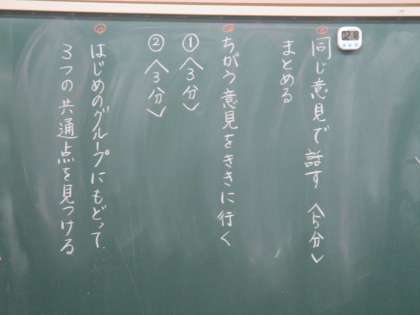 同じ意見で話す〈5分〉
まとめる
ちがう意見をききに行く
①〈3分〉
②〈3分〉
はじめのグループにもどって、
3つの共通点を見つける